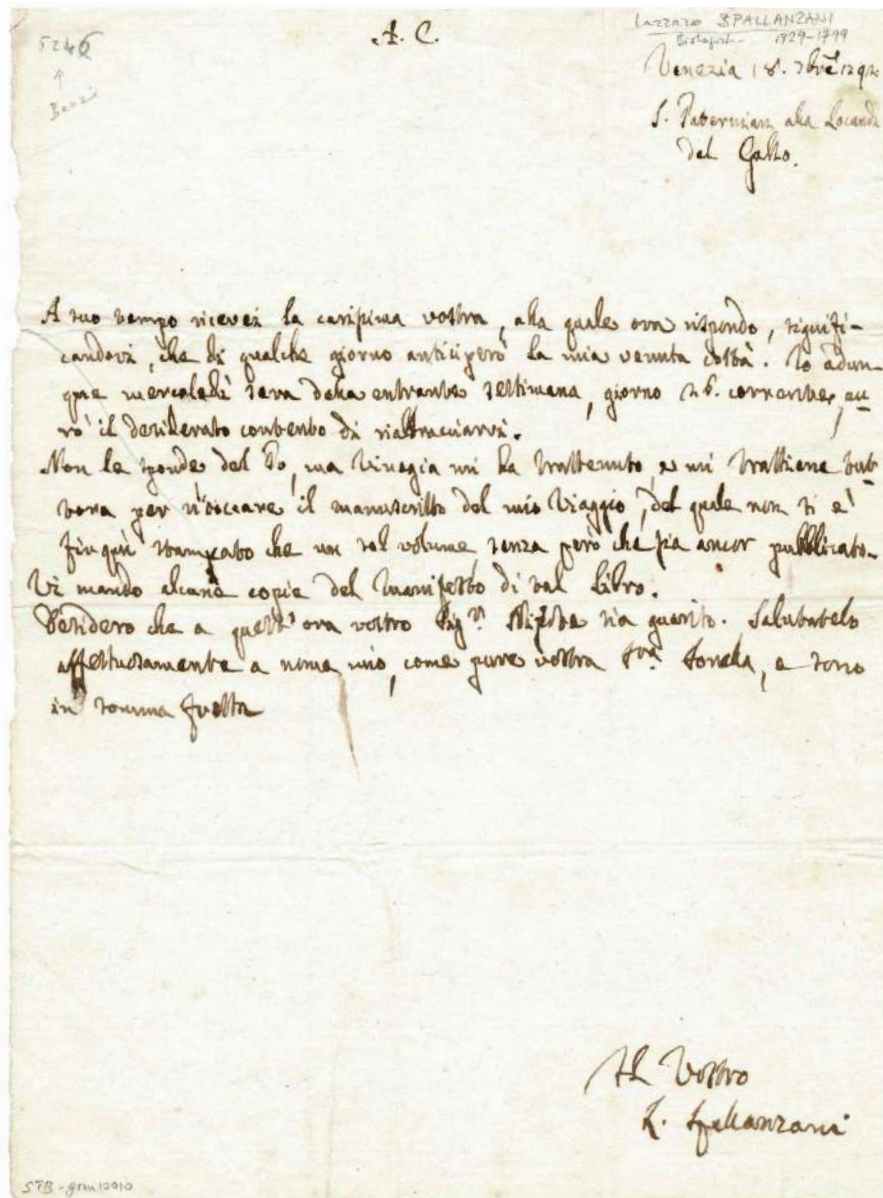 5246
A. C.
Lazzaro SPALLANZANI
1729-1799
Venezia 18. 7bre 1792.
S. Paternian alla Locanda
del Gallo.
A suo tempo ricevei la carissima vostra, alla quale ora rispondo, signifi-
candovi, che di qualche giorno anticiperò la mia venuta costà. Io adun-
que mercoledì sera della entrante settimana, giorno 26. corrente, au
rò il desiderato contento di riabbracciarvi.
Non le sponde del Po, ma Vinegia mi ha trattenuto, e mi trattiene tut-
tora per ritoccare il manuscritto del mio Viaggio, del quale non si è
finquì stampato che un sol volume senza però che sia ancor pubblicato.
Vi mando alcune copie del Manifesto di tal Libro.
Desidero che a quest' ora vostro Sigr. Nipote sia guarito. Salutatelo
affettuosamente a nome mio, come pure vostra Sra. Sorella, e sono
in somma fretta
Il Vostro
L. Spallanzani